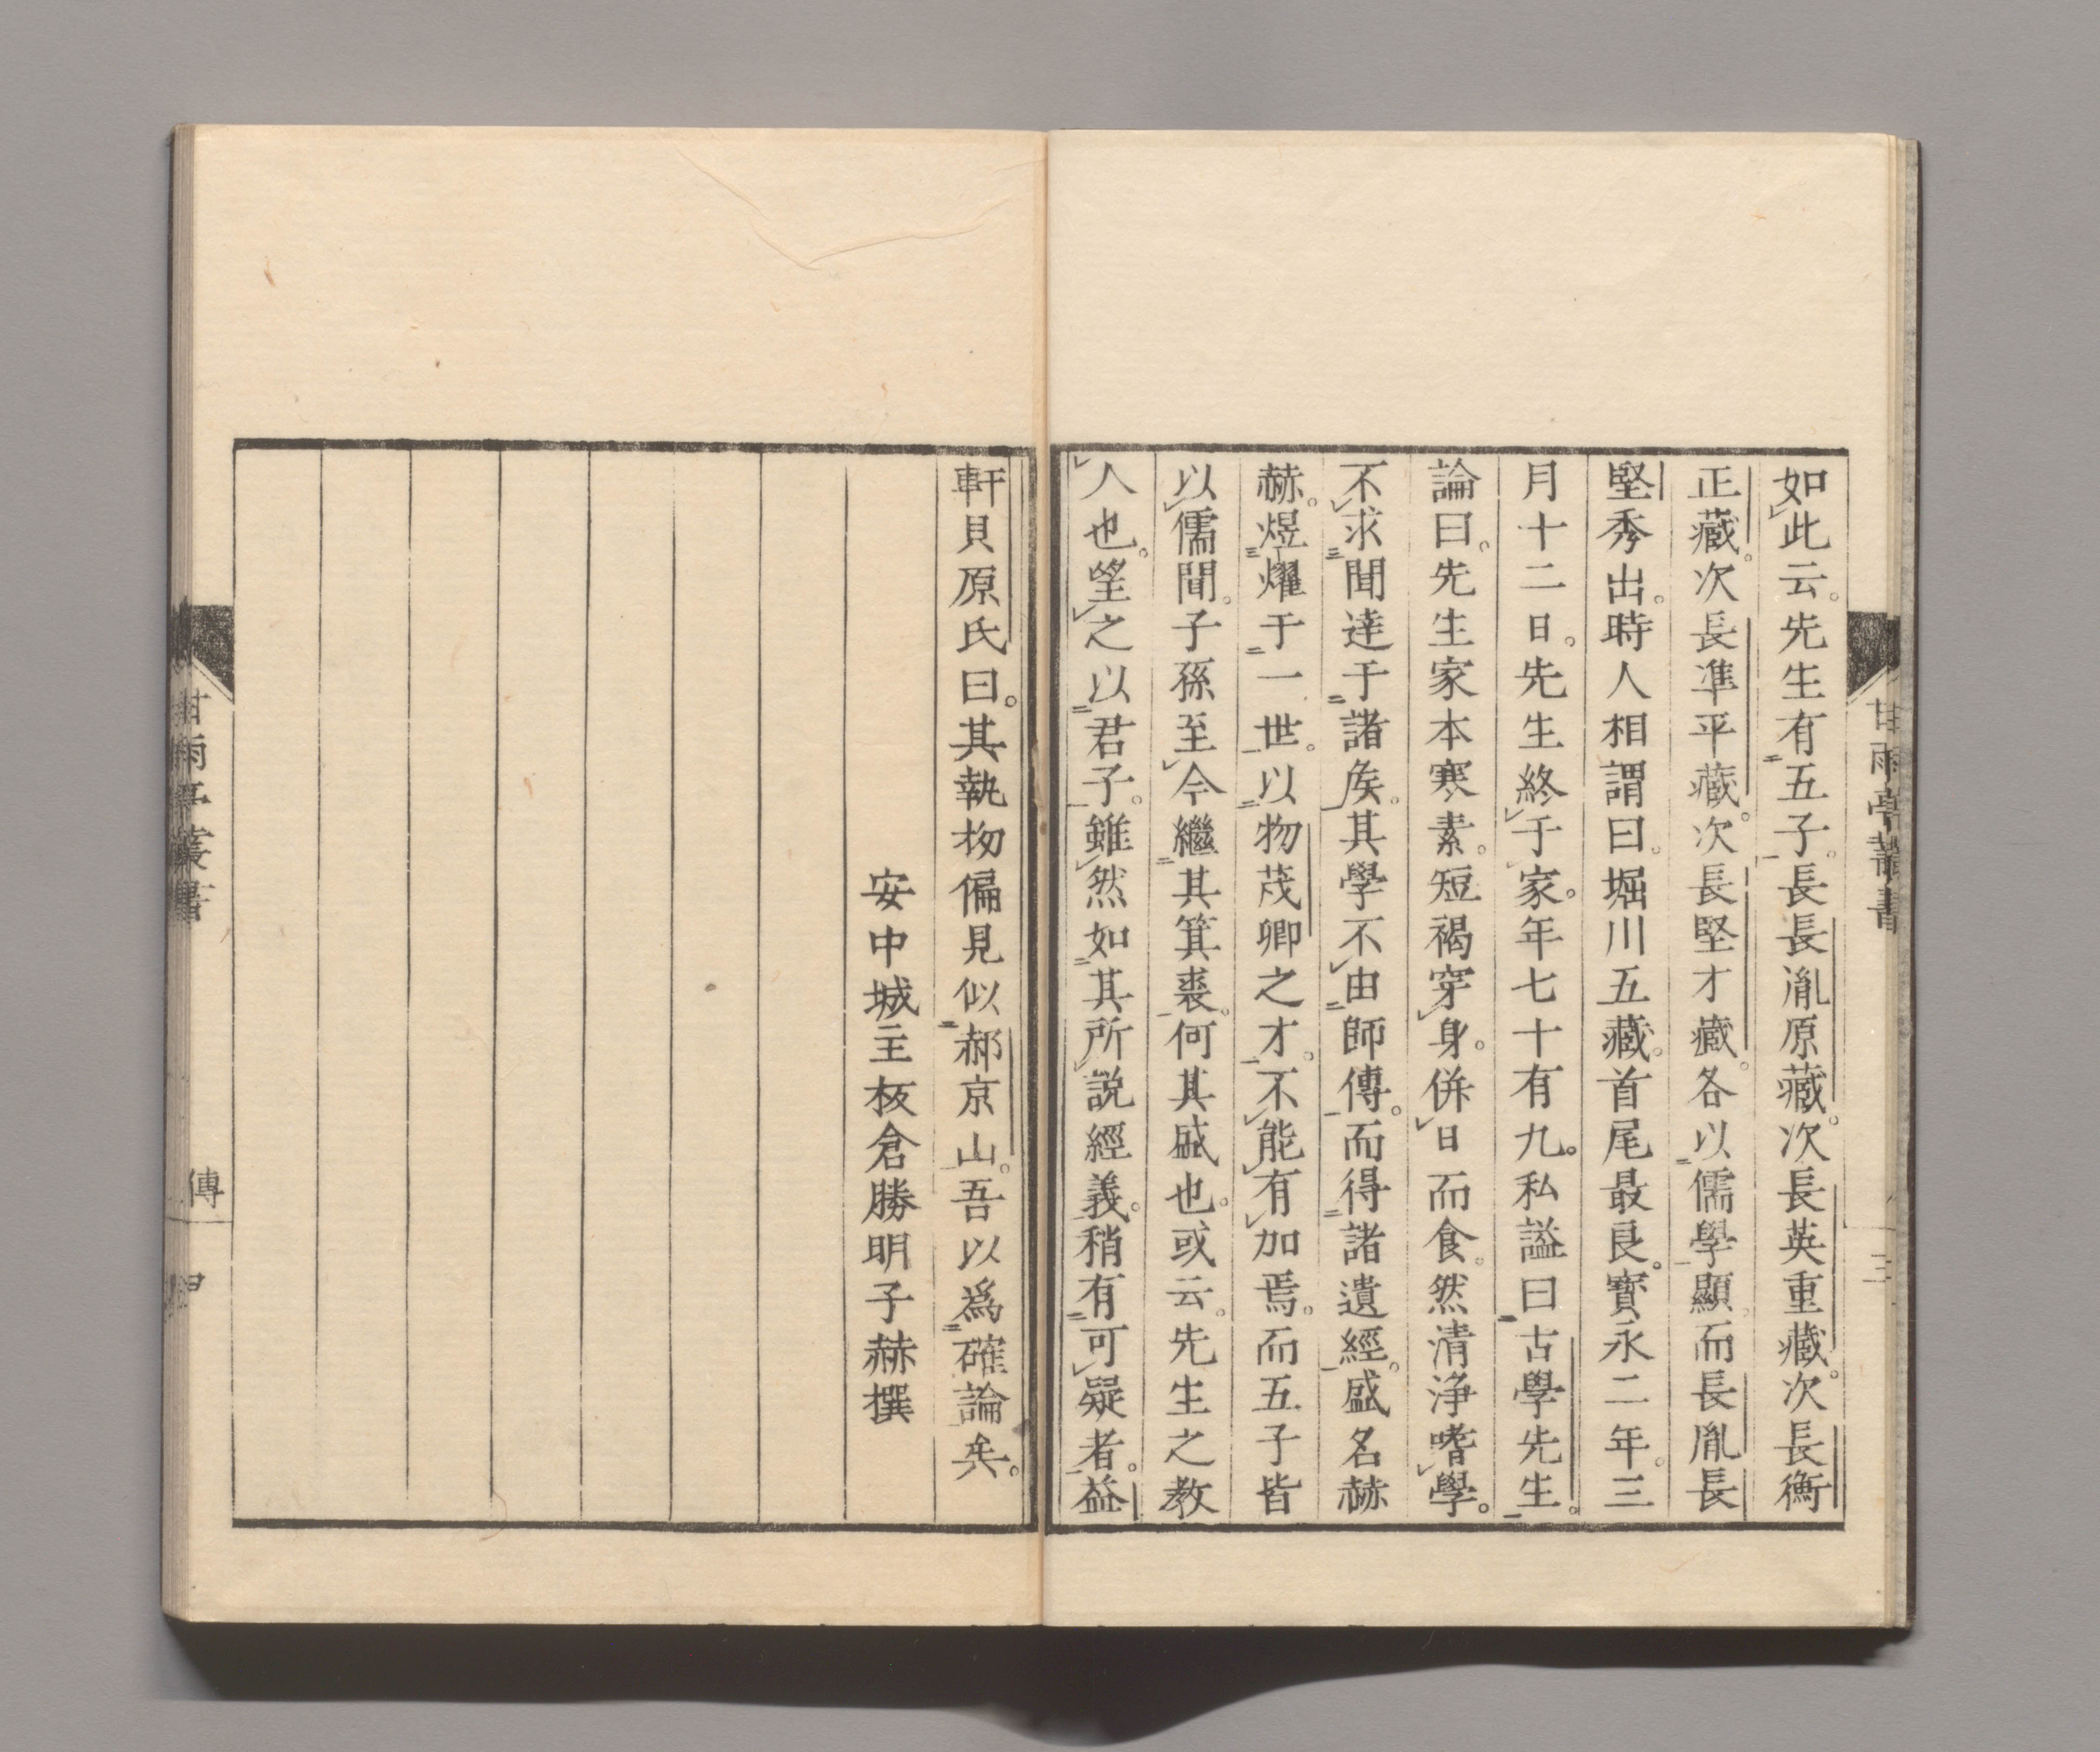 如此云。先生有五子。長長胤原藏。次長英重藏。次長衡
正藏。次長準平藏。次長堅才藏。各以儒學顯。而長胤長
堅秀出。時人相謂曰。堀川五藏。首尾最良。寶永二年。三
月十二日。先生終于家。年七十有九。私謚曰古學先生。
論曰。先生家本寒素。短褐穿身。併日而食。然清淨嗜學。
不求聞達于諸矦。其學不由師傳。而得諸遺經。盛名赫
赫。煜燿于一世。以物茂卿之才。不能有加焉。而五子皆
以儒聞。子孫至今繼其箕裘。何其盛也。或云。先生之教
人也。望之以君子。雖然如其所説經義。稍有可疑者。益
軒貝原氏曰。其執拗偏見似郝京山。吾以爲確論矣。
安中城主板倉勝明子赫撰
甘雨亭叢書
三
甘雨亭叢書
傳